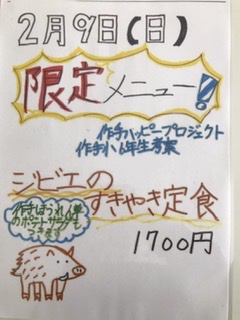 2月9日(日)
限定メニュー!
作手ハッピープロジェクト
作手小6年生考案
ジビエの
すきやき定食
作手ほうれん草
のポテトサラダも
つきます
1700円